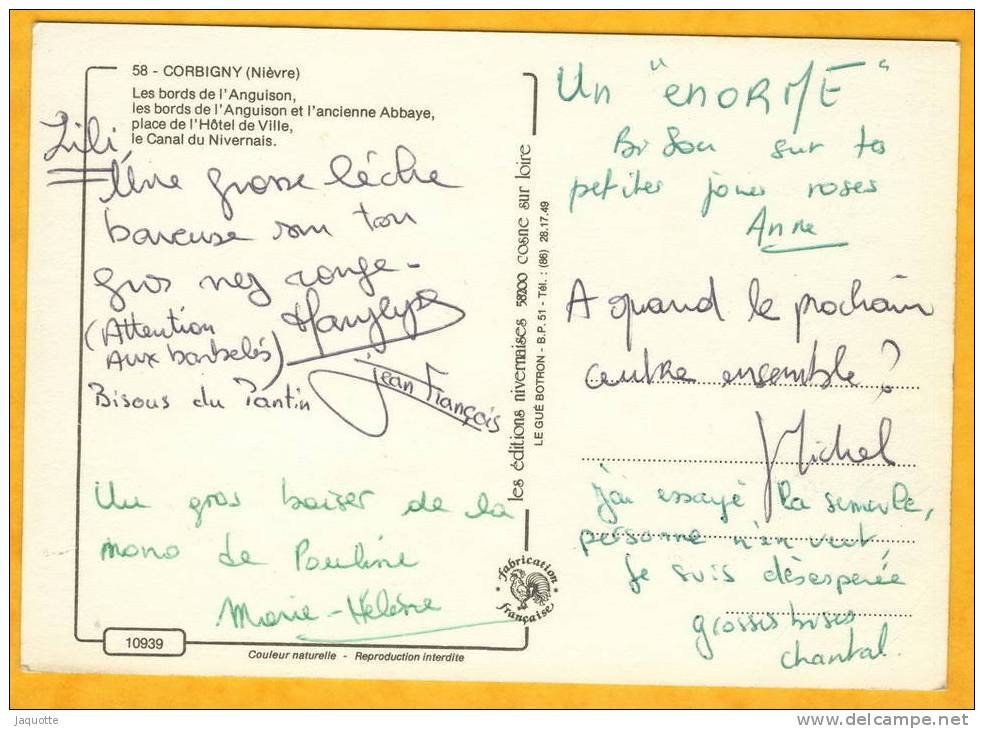 58 - CORBIGNY (Nièvre)
Les bords de l'Anguison,
les bords de l'Anguison et l'ancienne Abbaye,
place de l'Hôtel de Ville,
le Canal du Nivernais.
Lili,
Une grosse lèche
baveuse sur ton
gros nez rouge -
(Attention
Aux barbelés)
Bisous du Pantin
jean François
Un gros baiser de la
mono de Pauline
Marie-Hélène
10939
Couleur naturelle - Reproduction interdite
les éditions nivernaises 58200 cosne sur loire
LE GUÉ BOTRON - B.P. 51 - Tél. : (86) 28.17.49
fabrication
française
Un "enORME"
Bisou sur tes
petites joues roses
Anne
A quand le prochain
centre ensemble ?
Michel
j'ai essayé la semeule,
personne n'en veut,
Je suis désesperée
grosses bises
chantal.
Jaquotte
www.delcampe.net